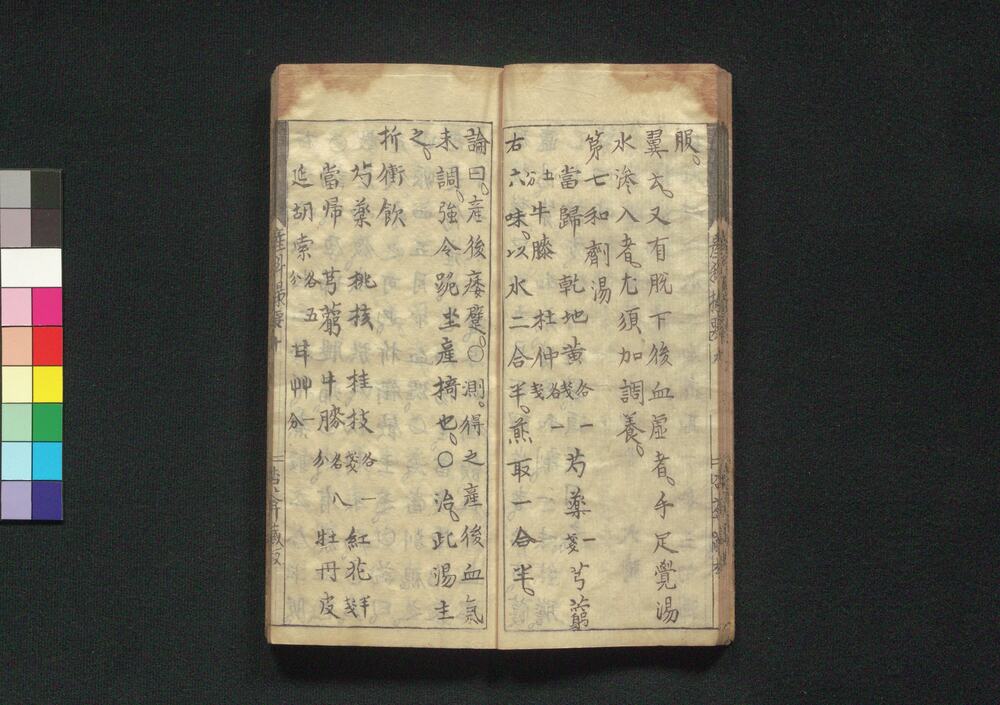 服。
翼云。又有脫下後血虛者。手足覺湯
水滲入者。尤須加調養。
第七和劑湯
當歸 乾地黄各一戔 芍藥一戔 芎藭
五分 牛膝 杜仲各一戔
右六味。以水二合半。煎取一合半。
論曰。産後痿躄。○測。得之産後血氣
未調。強令跪坐産椅也。○治。此湯主
之。
折衝飲
芍藥 桃核 桂枝各一戔 紅花半戔
當帰 芎藭 牛膝各八分 牡丹皮
延胡索各五分 甘艸一分